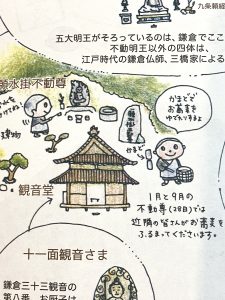 九条頼経
五大明王がそろっているのは、鎌倉でここ
不動明王以外の四体は、
江戸時代の鎌倉仏師、三橋家による
水掛不動尊
かまどで
お蕎麦を
ゆでたりするよ
かまど
観音堂
1月と9月の
不動尊(28日)では
近隣の皆さんがお蕎麦を
ふるまってくださいます。
十一面観音さま
鎌倉三十三観音の
第八番。お厨子は